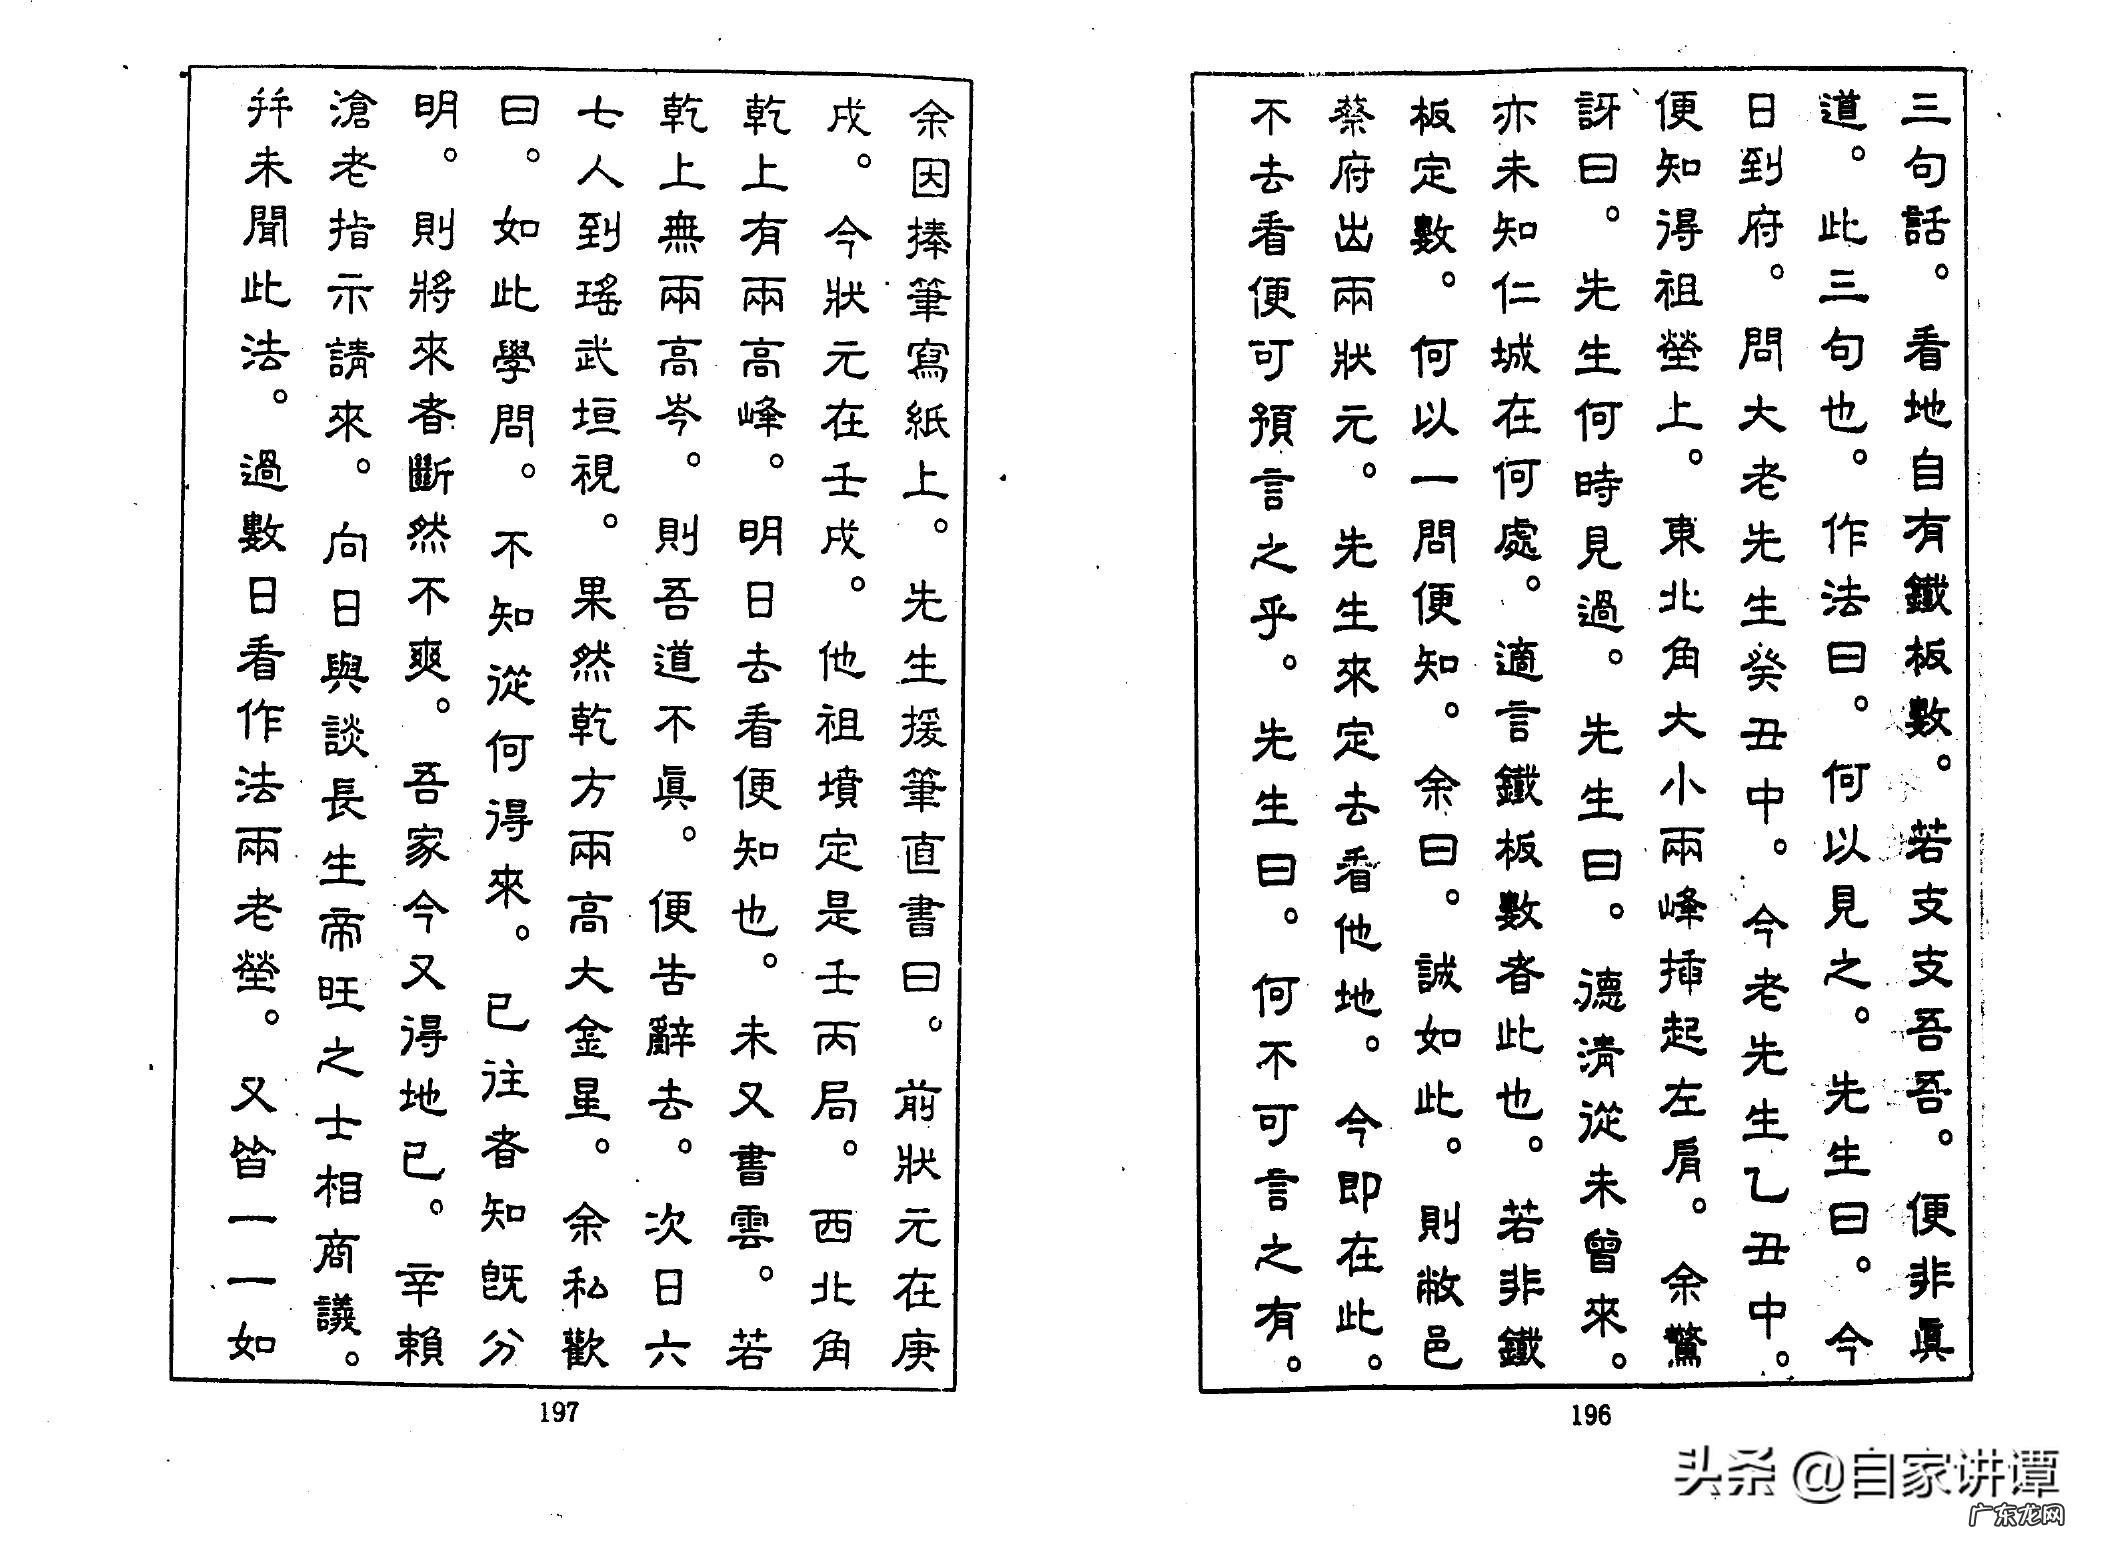 三句話。看地自有鐵板數。若支支吾吾。便非眞
道。此三句也。作法曰。何以見之。先生曰。今
日到府。問大老先生癸丑中。今老先生乙丑中。
便知得祖塋上。東北角大小兩峰插起左肩。余驚
訝曰。先生何時見過。先生曰。德清從未曾來。
亦未知仁城在何處。適言鐵板數者此也。若非鐵
板定數。何以一問便知。余曰。誠如此。則敝邑
蔡府出兩狀元。先生來定去看他地。今即在此。
不去看便可預言之乎。先生曰。何不可言之有。
196
余因捧筆寫紙上。先生援筆直書曰。前狀元在庚
戌。今狀元在壬戌。他祖墳定是壬丙局。西北角
乾上有兩高峰。明日去看便知也。未又書雲。若
乾上無兩高岑。則吾道不眞。便告辭去。次日六
七人到瑤武垣視。果然乾方兩高大金星。余私歡
曰。如此學問。不知從何得來。已往者知旣分
明。則將來者斷然不爽。吾家今又得地已。辛賴
滄老指示請來。向日與談長生帝旺之士相商議。
幷未聞此法。過數日看作法兩老塋。又皆一一如
197
头条 @自家讲谭
广东龙网